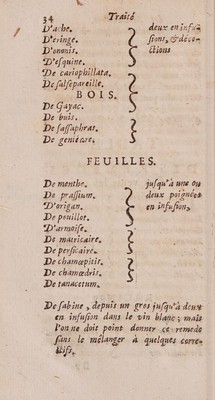 34 Traité
D'ache. deux en infu-
D'eringe. sions, & déco-
D'ononis. ctions
D'esquine.
De cariophillata.
De salsepareille.
BOIS.
De Gayac.
De buis.
De sassaphras.
De genievre.
FEUILLES.
De menthe. jusqu'à une ou
De prassium. deux poignées
D'origan. en infusion,
De peuillot.
D'armoise.
De matricaire.
De persicaire.
De chamœpitis.
De chamœdris.
De tanacetum.
De sabine, depuis un gros jusqu'à deux
en infusion dans le vin blanc; mais
l'on ne doit point donner ce remede
sans le mélanger à quelques corre-
ctifs.